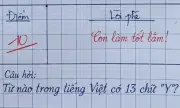 Điểm
Lời phê
10
Con làm tốt lắm!
Câu hỏi:
Từ nào trong tiếng Việt có 13 chữ "Y"?